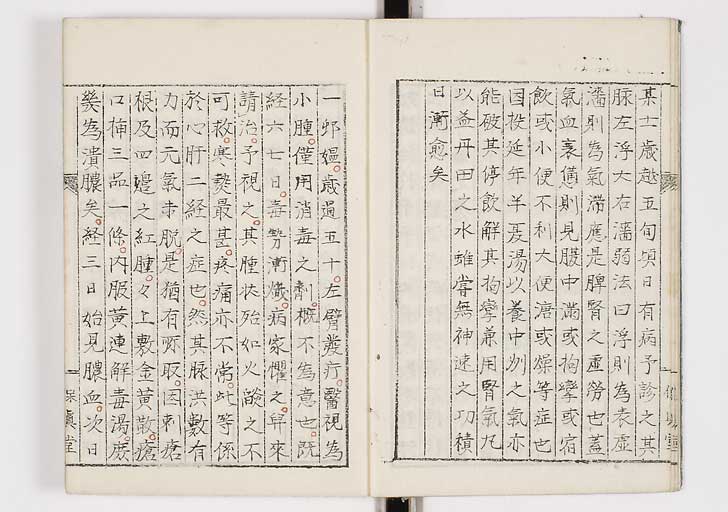 某士歳越五旬頃日有病予診之其
脉左浮大右濇弱法曰浮則為表虚
濇則為氣滯應是脾腎之虚勞也蓋
氣血衰憊則見腹中滿或拘攣或宿
飲或小便不利大便溏或燥等症也
因投延年半夏湯以養中州之氣亦
能破其停飲解其拘攣兼用腎氣丸
以益丹田之水雖嘗無神速之功積
日漸愈矣
一邨媼歳過五十左臂發疔醫視為
小腫僅用消毒之劑概不為意也既
経六七日毒勢漸熾病家懼之舁來
請治予視之其腫状殆如火燄之不
可救寒熱最甚疼痛亦不常此等係
於心肝二経之症也然其脉洪數有
力而元氣未脱是猶有所取因刺瘡
根及四邊之紅腫々上敷金黄散瘡
口挿三品一條内服黄連解毒湯庶
幾為潰膿矣経三日始見膿血次日